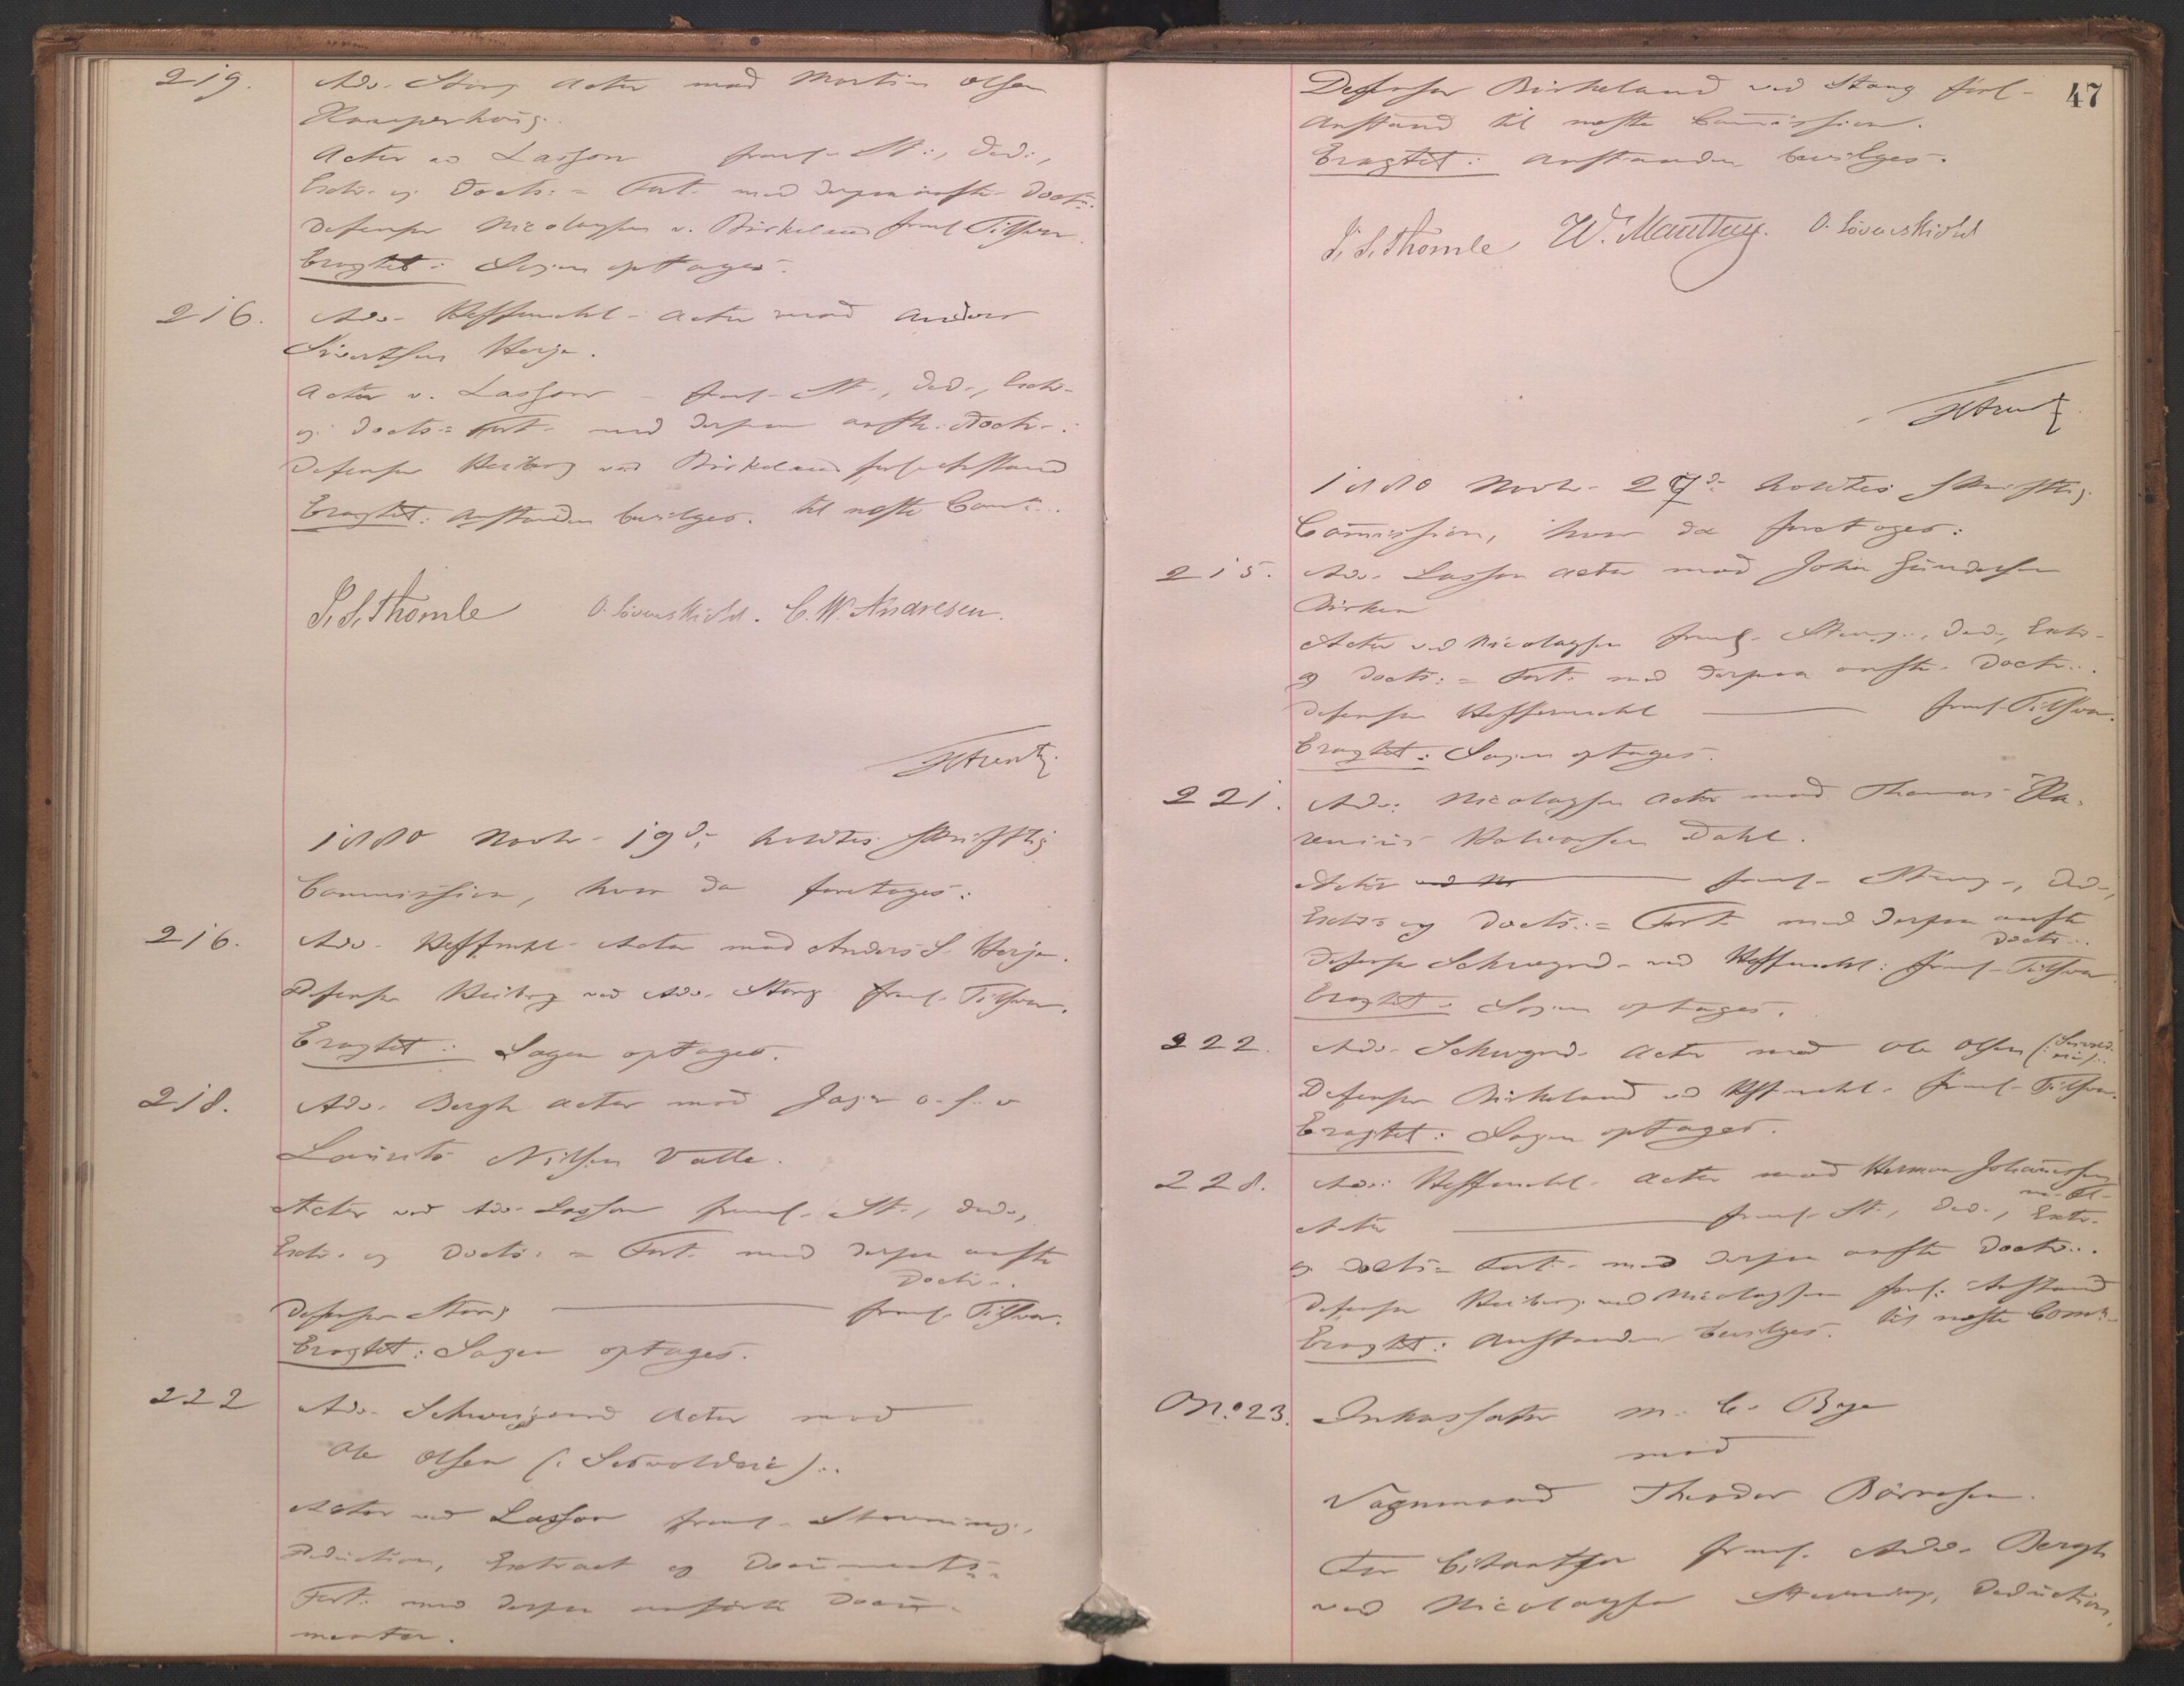 219. Adv. Stang Actor mod Martin Olsen
Kamperhoug.
Actor v. Lasson freml. St., Ded.,
Extr. og Docts.= Fort. med derpaa anfte. Doctr.
Defensor Nicolaysen v. Birkeland freml. Tilsvar.
Eragtet: Sagen optages.
216. Adv. Heffermehl Actor mod Anders
Sivertsen Herje.
Actor v. Lasson freml. St., Ded., Extr.
og Docts.= Fort. med derpaa anfte. Doctr.
Defensor Heiberg ved Birkeland forl. Anstand
til næste Comm.
Eragtet: Anstanden bevilges.
S. S. Thomle O. Løvenskiold. C. W. Andresen.
1880 Novbr. 19de holdtes skriftlig
Commission, hvor da foretoges:
216. Adv. Heffermehl Actor mod Anders S. Herje.
Defensor Heiberg ved Adv. Stang freml. Tilsvar.
Eragtet: Sagen optages.
218. Adv. Bergh Actor mod
Laurits Nilsen Valle.
Actor ved Adv. Lasson freml. St., Ded.,
Extr. og Docts.= Fort. med derpaa anfte
Doctr.
Defensor Stang freml. Tilsvar.
Eragtet: Sagen optages.
222 Adv. Schweigaard Actor mod
Ole Olsen
Actor ved Lasson freml. Stevning,
Deduction, Extract og Documents=
Fort. med derpaa anførte Docu-
menter.
47
Defensor Birkeland ved Stang forl.
Anstand til næste Commission.
Eragtet: Anstanden bevilges.
S. S. Thomle W. Manthey. O. Løvenskiold
1880 Novbr. 27de holdtes skriftlig
Commission, hvor da foretoges:
215. Adv. Lasson Actor mod Johan Gundersen
Birken
Actor ved Nicolaysen freml. Stevng., Ded., Extr.
og Docts.= Fort. med derpaa anfte. Doctr.
Defensor Heffermehl freml. Tilsvar.
Eragtet: Sagen optages.
221. Adv. Nicolaysen Actor mod Thomas Ha-
renius Halvorsen Dahl.
Actor freml. Stevng., Ded.,
Extr. og Docts.= Fort. med derpaa anfte
Doctr.
Defensor Schweigrd. ved Heffermehl: freml. Tilsvar
Eragtet: Sagen optages.
222. Adv. Schweigrd. Actor mod Ole Olsen
Defensor Birkeland ved Heffermehl. freml. Tilsvar.
Eragtet: Sagen optages.
228. Adv. Heffermehl Actor mod Herman Johannessen
Actor freml. St., Ded., Extr.
og Docts.= Fort. med derpaa anfte Doctr.
Defensor Heiberg ved Nicolaysen forl. Anstand
til næste Comm.
Eragtet: Anstanden bevilges.
No. 23. Inkassator M. C. Bye
mod
Vognmand Theodor Børresen.
For Citantsen freml. Adv. Bergh
ved Nicolaysen Stevning, Deduction,